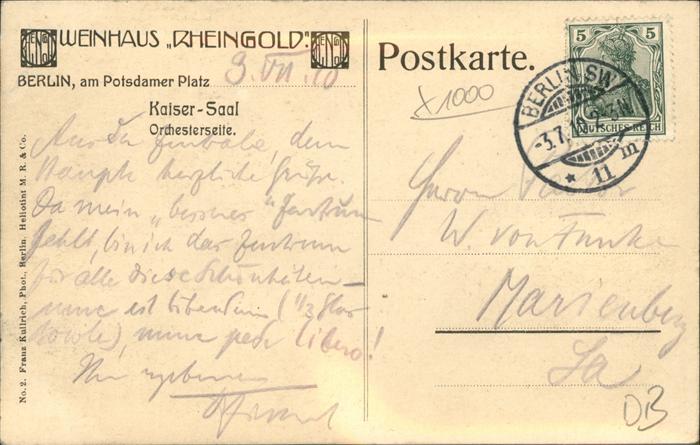 WEINHAUS „RHEINGOLD".
BERLIN, am Potsdamer Platz
Kaiser-Saal
Orchesterseite.
3. VII. 10
Aus der Zentrale, dem
herzliche Grüße.
Da mein „besseres" Zentrum
fehlt, bin ich das Zentrum
für alle diese Schönheiten –
nunc est bibendum (1/3
Bowle), nunc pede libero!
Ihr ergebener
No. 2. Franz Kullrich, Phot., Berlin. Heliotint M. R. & Co.
Postkarte.
x1000
5 5
DEUTSCHES REICH
BERLIN SW
-3.7.
* 11 m
Herrn
W. von Funke
Marienberg
Sa
DB